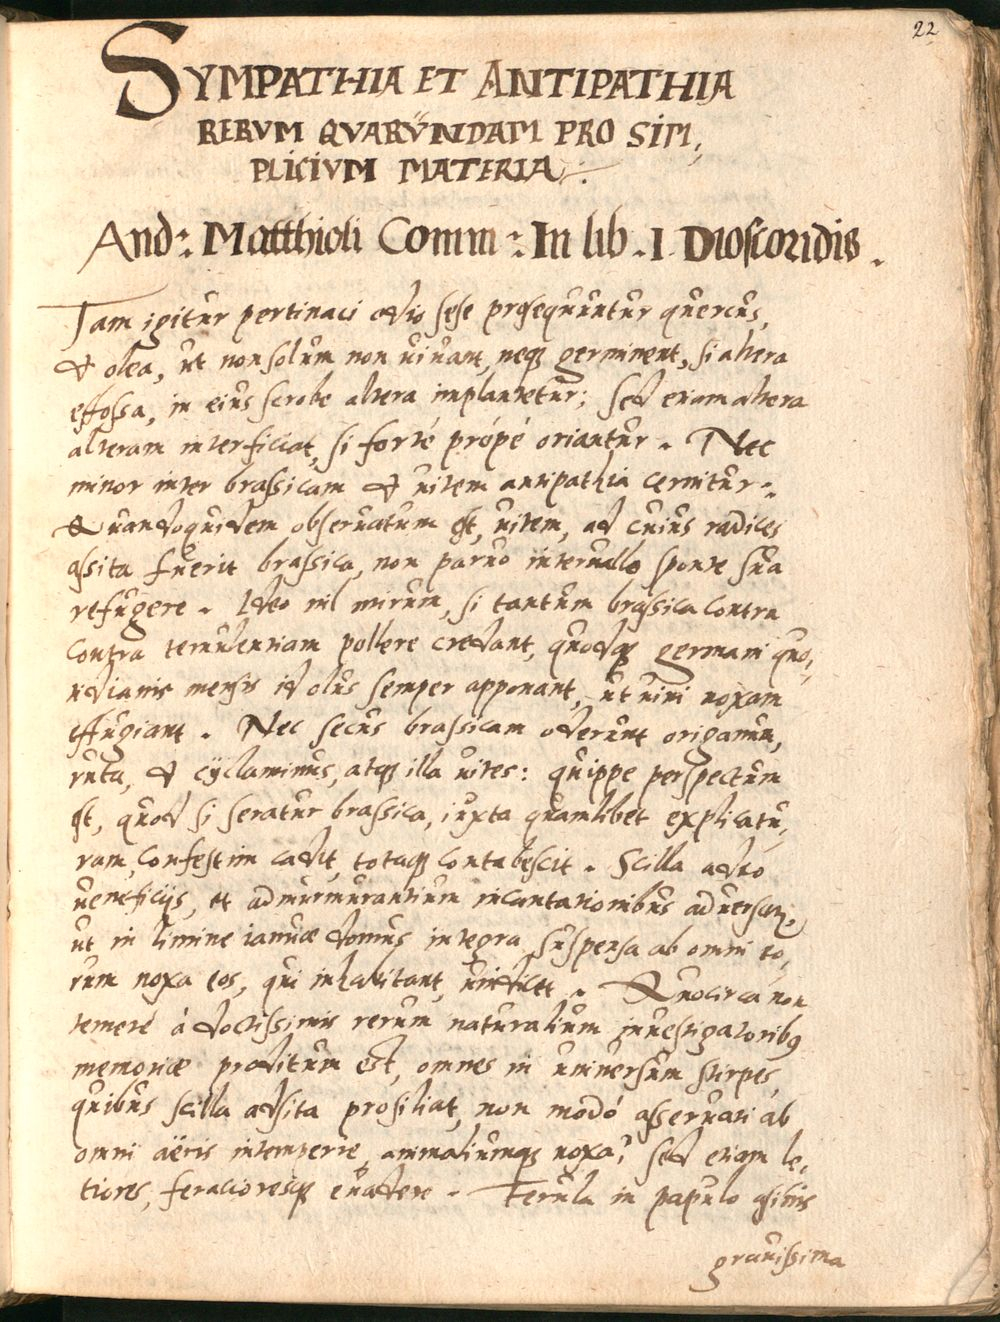 22
SYMPATHIA ET ANTIPATHIA
RERVM QVARŬNDAM PRO SIM,
PLICIVM MATERIA
And: Matthioli Comm: In lib. I. Dioscoridis.
Tam igitŭr pertinaci odio sese prosequŭntŭr quercŭs,
& olea, ŭt non solŭm non uiŭant, neq; germinent, si altera
effossa, in eiŭs scrobe altera implantetŭr; sed etiam altera
alteram interficiat, si forté própé oriantŭr. Nec
minor inter brassicam & ŭitem antipathia cernitŭr.
Quandoquidem obserŭatŭm est, ŭitem, ad cŭiŭs radices
assita fŭerit brassica, non parŭo interŭallo sponte sŭa
refŭgere. Ideo nil mirŭm, si tantŭm brassica contra
contra temŭlentiam pollere credant, qŭodq; germani quo,
tidianis mensis id olŭs semper apponant, ŭt ŭini noxam
effŭgiant. Nec secŭs brassicam oderŭnt origanŭm,
rŭta, & cyclaminŭs, atq; illa ŭites: qŭippe perspectŭm
est, qŭod si seratŭr brassica, iŭxta qŭamlibet explicatŭ,
ram, confestim cadit, totaq; contabescit. Scilla adeo
ŭeneficijs, et admŭrmŭrantiŭm incantationibŭs aduersat,
ŭt in limine ianŭæ domŭs integra sŭspensa ab omni eo,
rŭm noxa eos, qui inhabitant, ŭindicet. Quocirca non
temeré á doctissimis rerŭm natŭraliŭm inŭestigatoribus
memoriæ proditŭm est, omnes in ŭniŭersŭm stirpes,
qŭibŭs scilla adsita prosiliat, non modó asserŭari ab
omni aëris intemperie, animaliŭmq; noxa, sed etiam le,
tiores, feracioresq; eŭadere. Ferŭla in papŭlo assitis
graŭissima